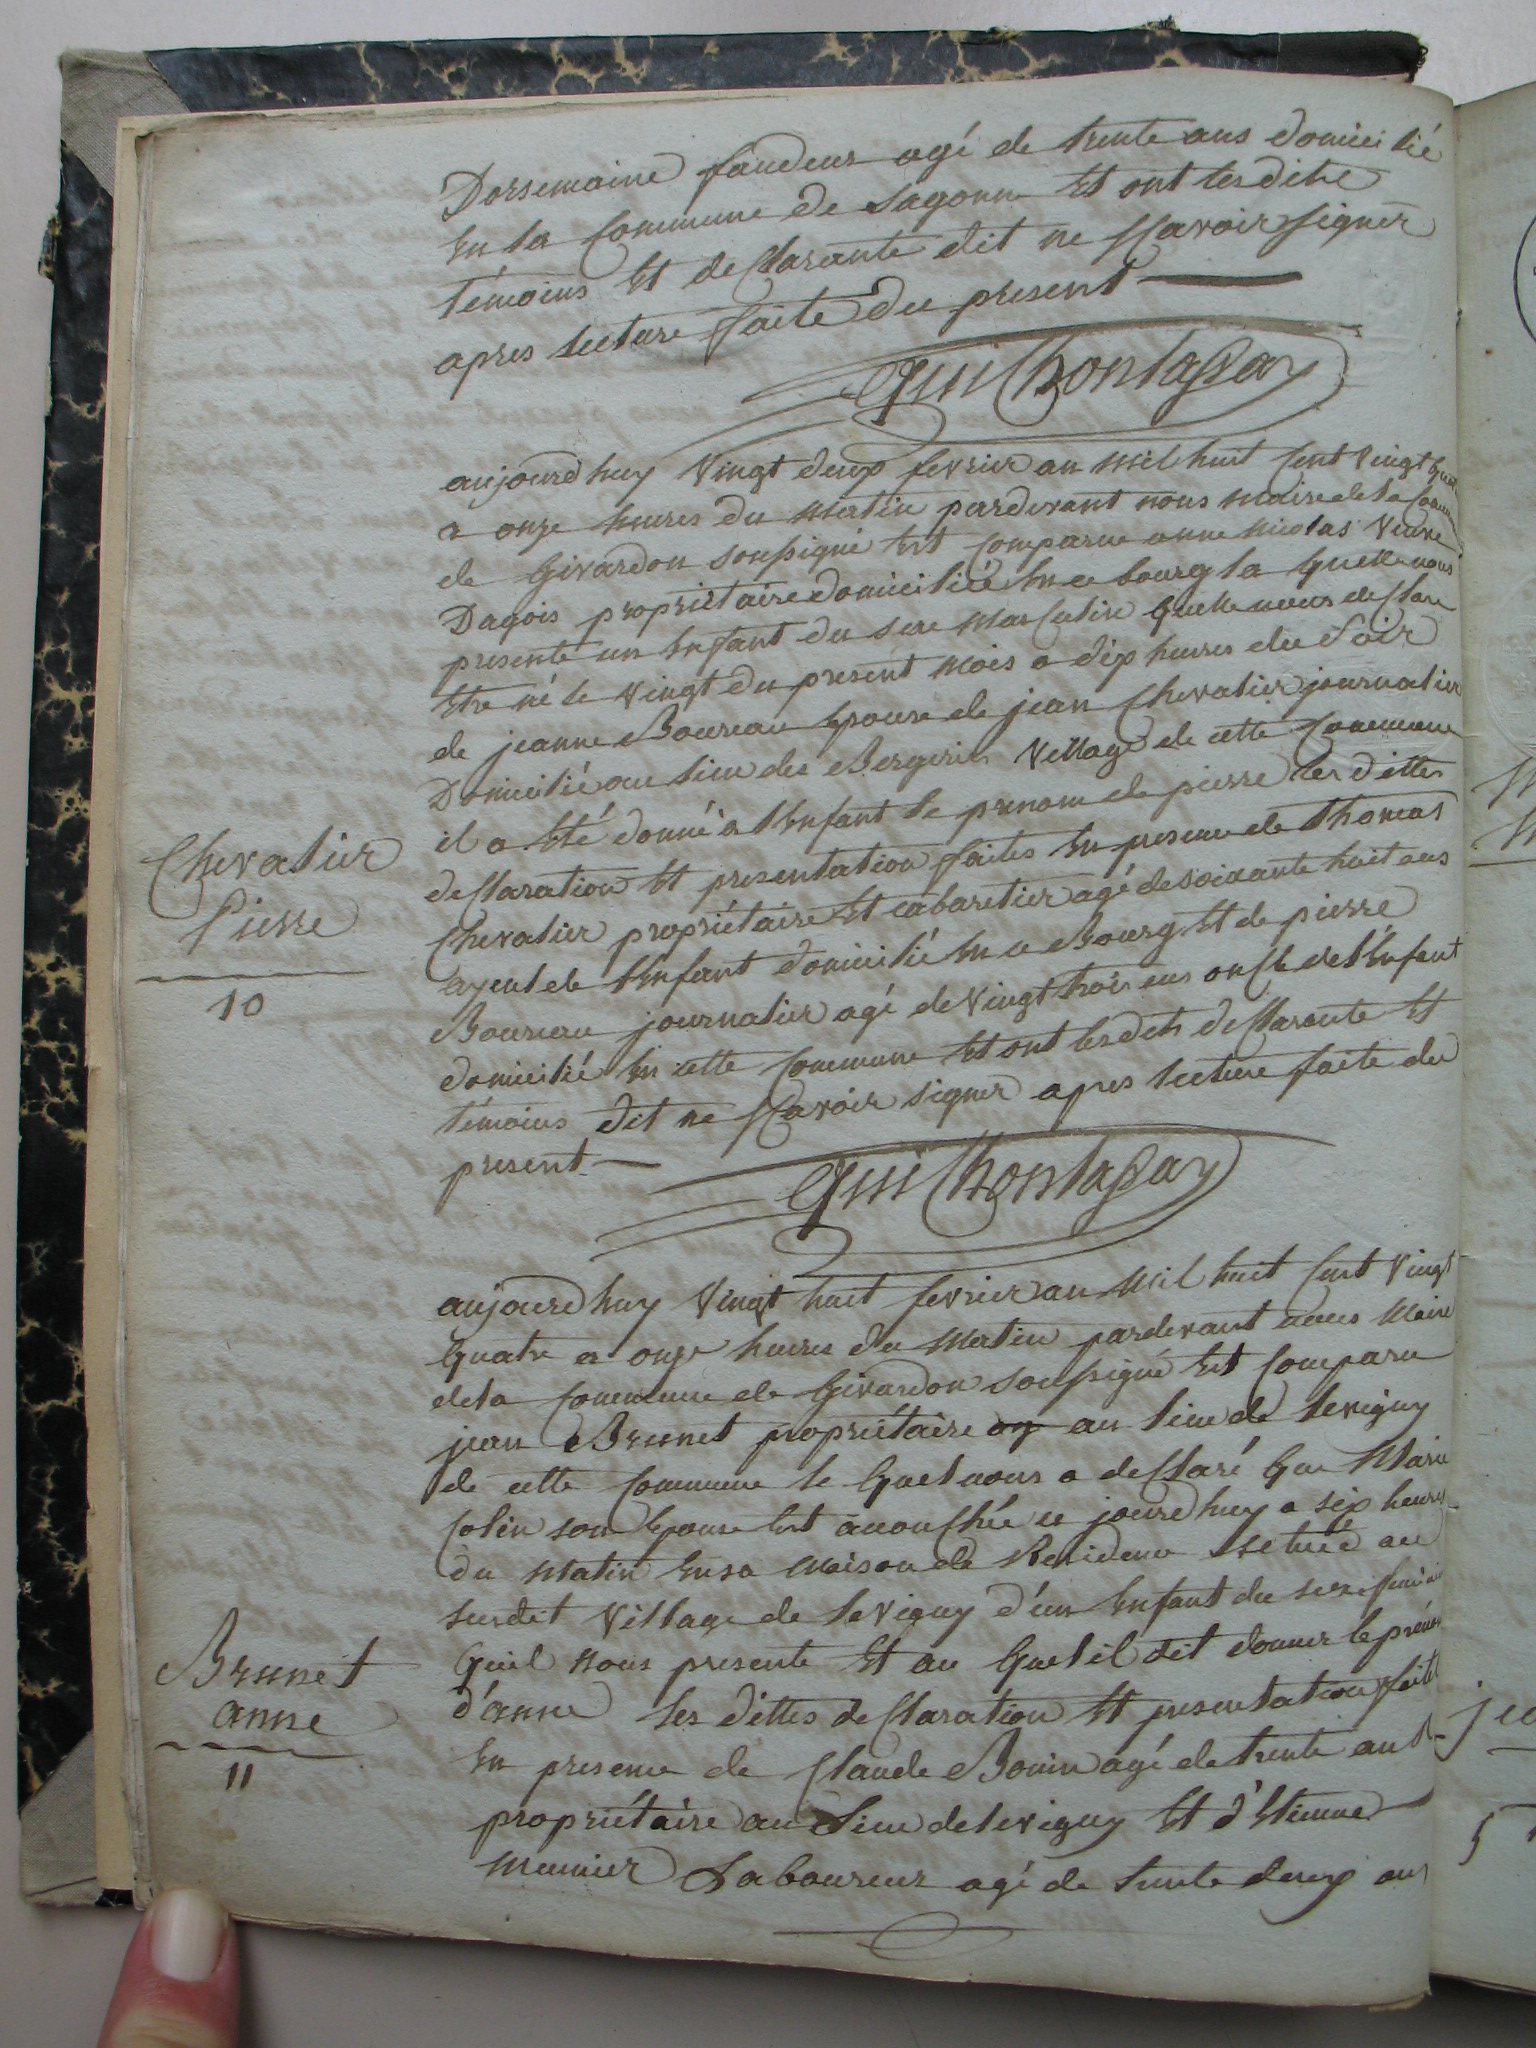 Dorsemaine fandeur agé de trente ans domicilié
En la Commune de Sagonne Et ont lesdits
témoins Et desclarante dit ne sçavoir signer
apres lecture faite du present
aujourdhuy Vingt deux fevrier an mil huit Cent Vingt quatre
a onze heures du matin pardevant nous maire de la Commune
de Givardon soussigné Est Comparue anne nicolas Veuve
Dagois propriétaire domiciliée En ce bourg la quelle nous
presente un Enfant du sexe masculin quelle nous desclare
Etre né le Vingt du present mois a dix heures du Soir
de jeanne Boureau Epouse de jean Chevalier journalier
Domicilié au lieu des Bergeries Village de cette Commune
il a Eté donné a lEnfant le prenom de pierre les dittes
desclaration Et presentation faites En presence de thomas
Chevalier propriétaire Et cabaretier agé de soixante huit ans
ayeul de lEnfant domicilié En ce Bourg Et de pierre
Boureau journalier agé de Vingt trois ans oncle de lEnfant
domicilié En cette Commune Et ont lesdits desclarante Et
témoins dit ne sçavoir signer apres lecture faite du
present
Chevalier
Pierre
10
aujourdhuy Vingt huit fevrier an mil huit Cent Vingt
Quatre a onze heures du matin pardevant nous maire
de la Commune de Givardon soussigné Est Comparu
jean Brunet propriétaire au lieu de levigny
de cette Commune le quel nous a desclaré que Marie
Colin son Epouse Est acouchée ce jourdhuy a six heures
du matin En sa maison de Residence située au
susdit Village de levigny d'un Enfant du sexe feminin
quil nous presente Et au quel il dit donner le prénom
d'anne les dittes desclaration Et presentation faites
En presence de Claude Bonin agé de trente ans
propriétaire au Lieu de levigny Et d'Etienne
meunier Laboureur agé de trente deux ans
Brunet
anne
11